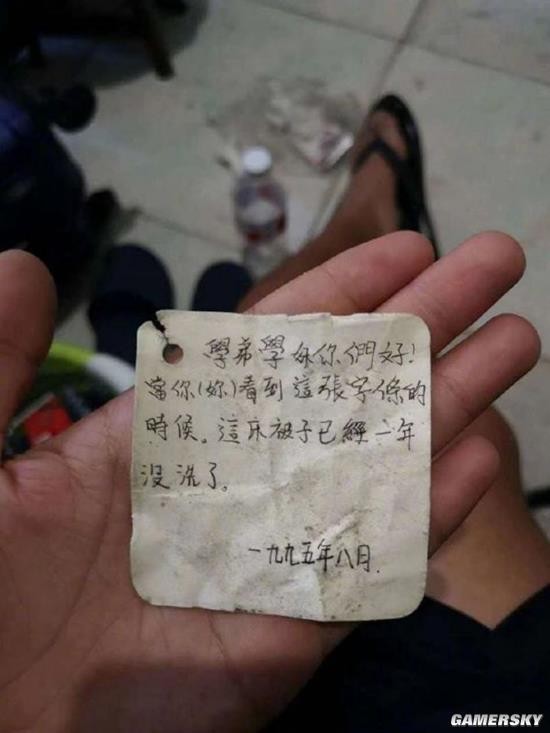 學弟學妹你們好!
當你(妳)看到這張字條的
時候。這床被子已經一年
沒洗了。
一九九五年八日.
GAMERSKY